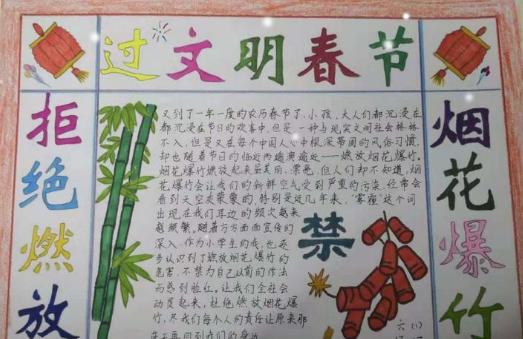 过文明春节
拒绝燃放
烟花爆竹
禁
又到了一年一度的农历春节了,小孩、大人们都沉浸在
都沉浸在节日的欢喜中,但是一种与现实文明社会格格
不入,但是又在每个中国人心中根深蒂固的风俗习惯,
却也随春节的临近而越演越近——燃放烟花爆竹,
烟花爆竹燃放起来虽美丽、漂亮,但人们却不知道,烟
花爆竹会让我们的新鲜空气受到严重的污染,经常会
看到天空灰蒙蒙的,特别是近几年来,“雾霾”这个词
出现在我们耳边的频次越来
越频繁,随着方方面面宣传的
深入,作为小学生的我,也逐
步认识到了燃放烟花爆竹的
危害,不禁为自己以前的作法
而感到脸红。让我们全社会
动员起来,杜绝燃放烟花爆
竹,尽我们每个人的责任让原来那
六(1)